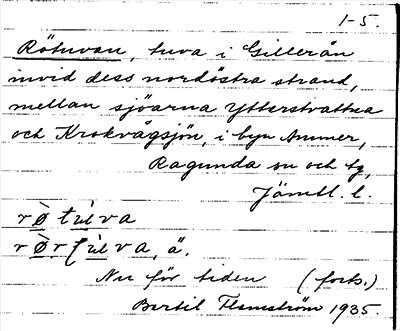 1-5.
Rötuvan, tuva i Gillerån
invid dess nordöstra strand,
mellan sjöarna Ytterstvattna
och Krokvågsjön, i byn Ammer,
Ragunda sn och tg,
Jämtl. l.
rø̀ tu̇va
rø̀rʃu̇lva, ä.
Nu för tiden (forts.)
Bertil Flemström 1935.